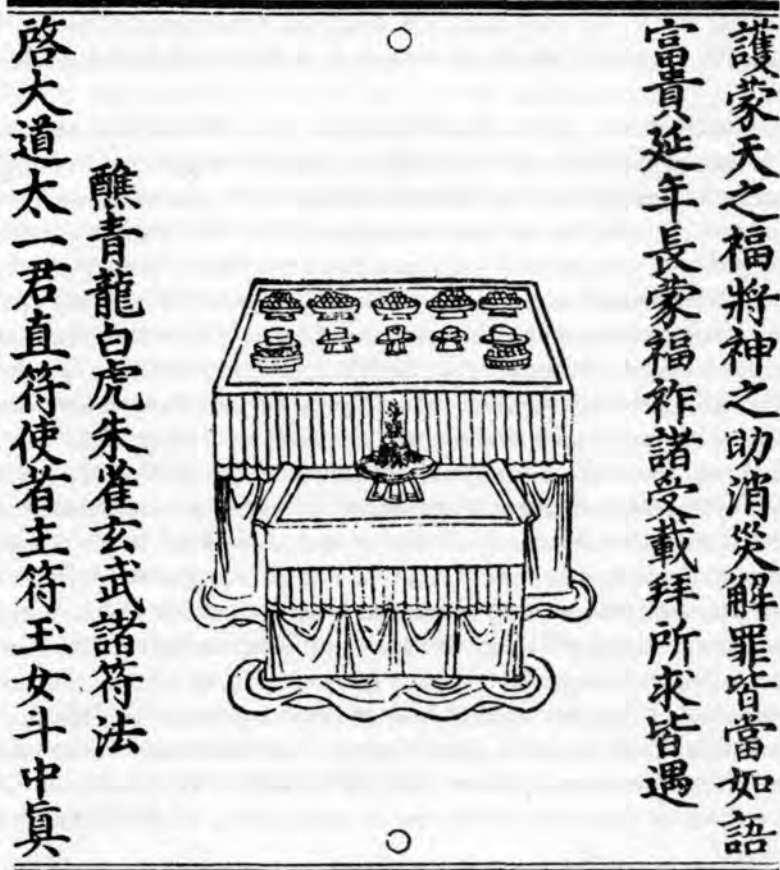 護蒙天之福將神之助消災解罪皆當如語
富貴延年長蒙福祚諸受載拜所求皆遇
醮青龍白虎朱雀玄武諸符法
啓大道太一君直符使者主符王女斗中眞